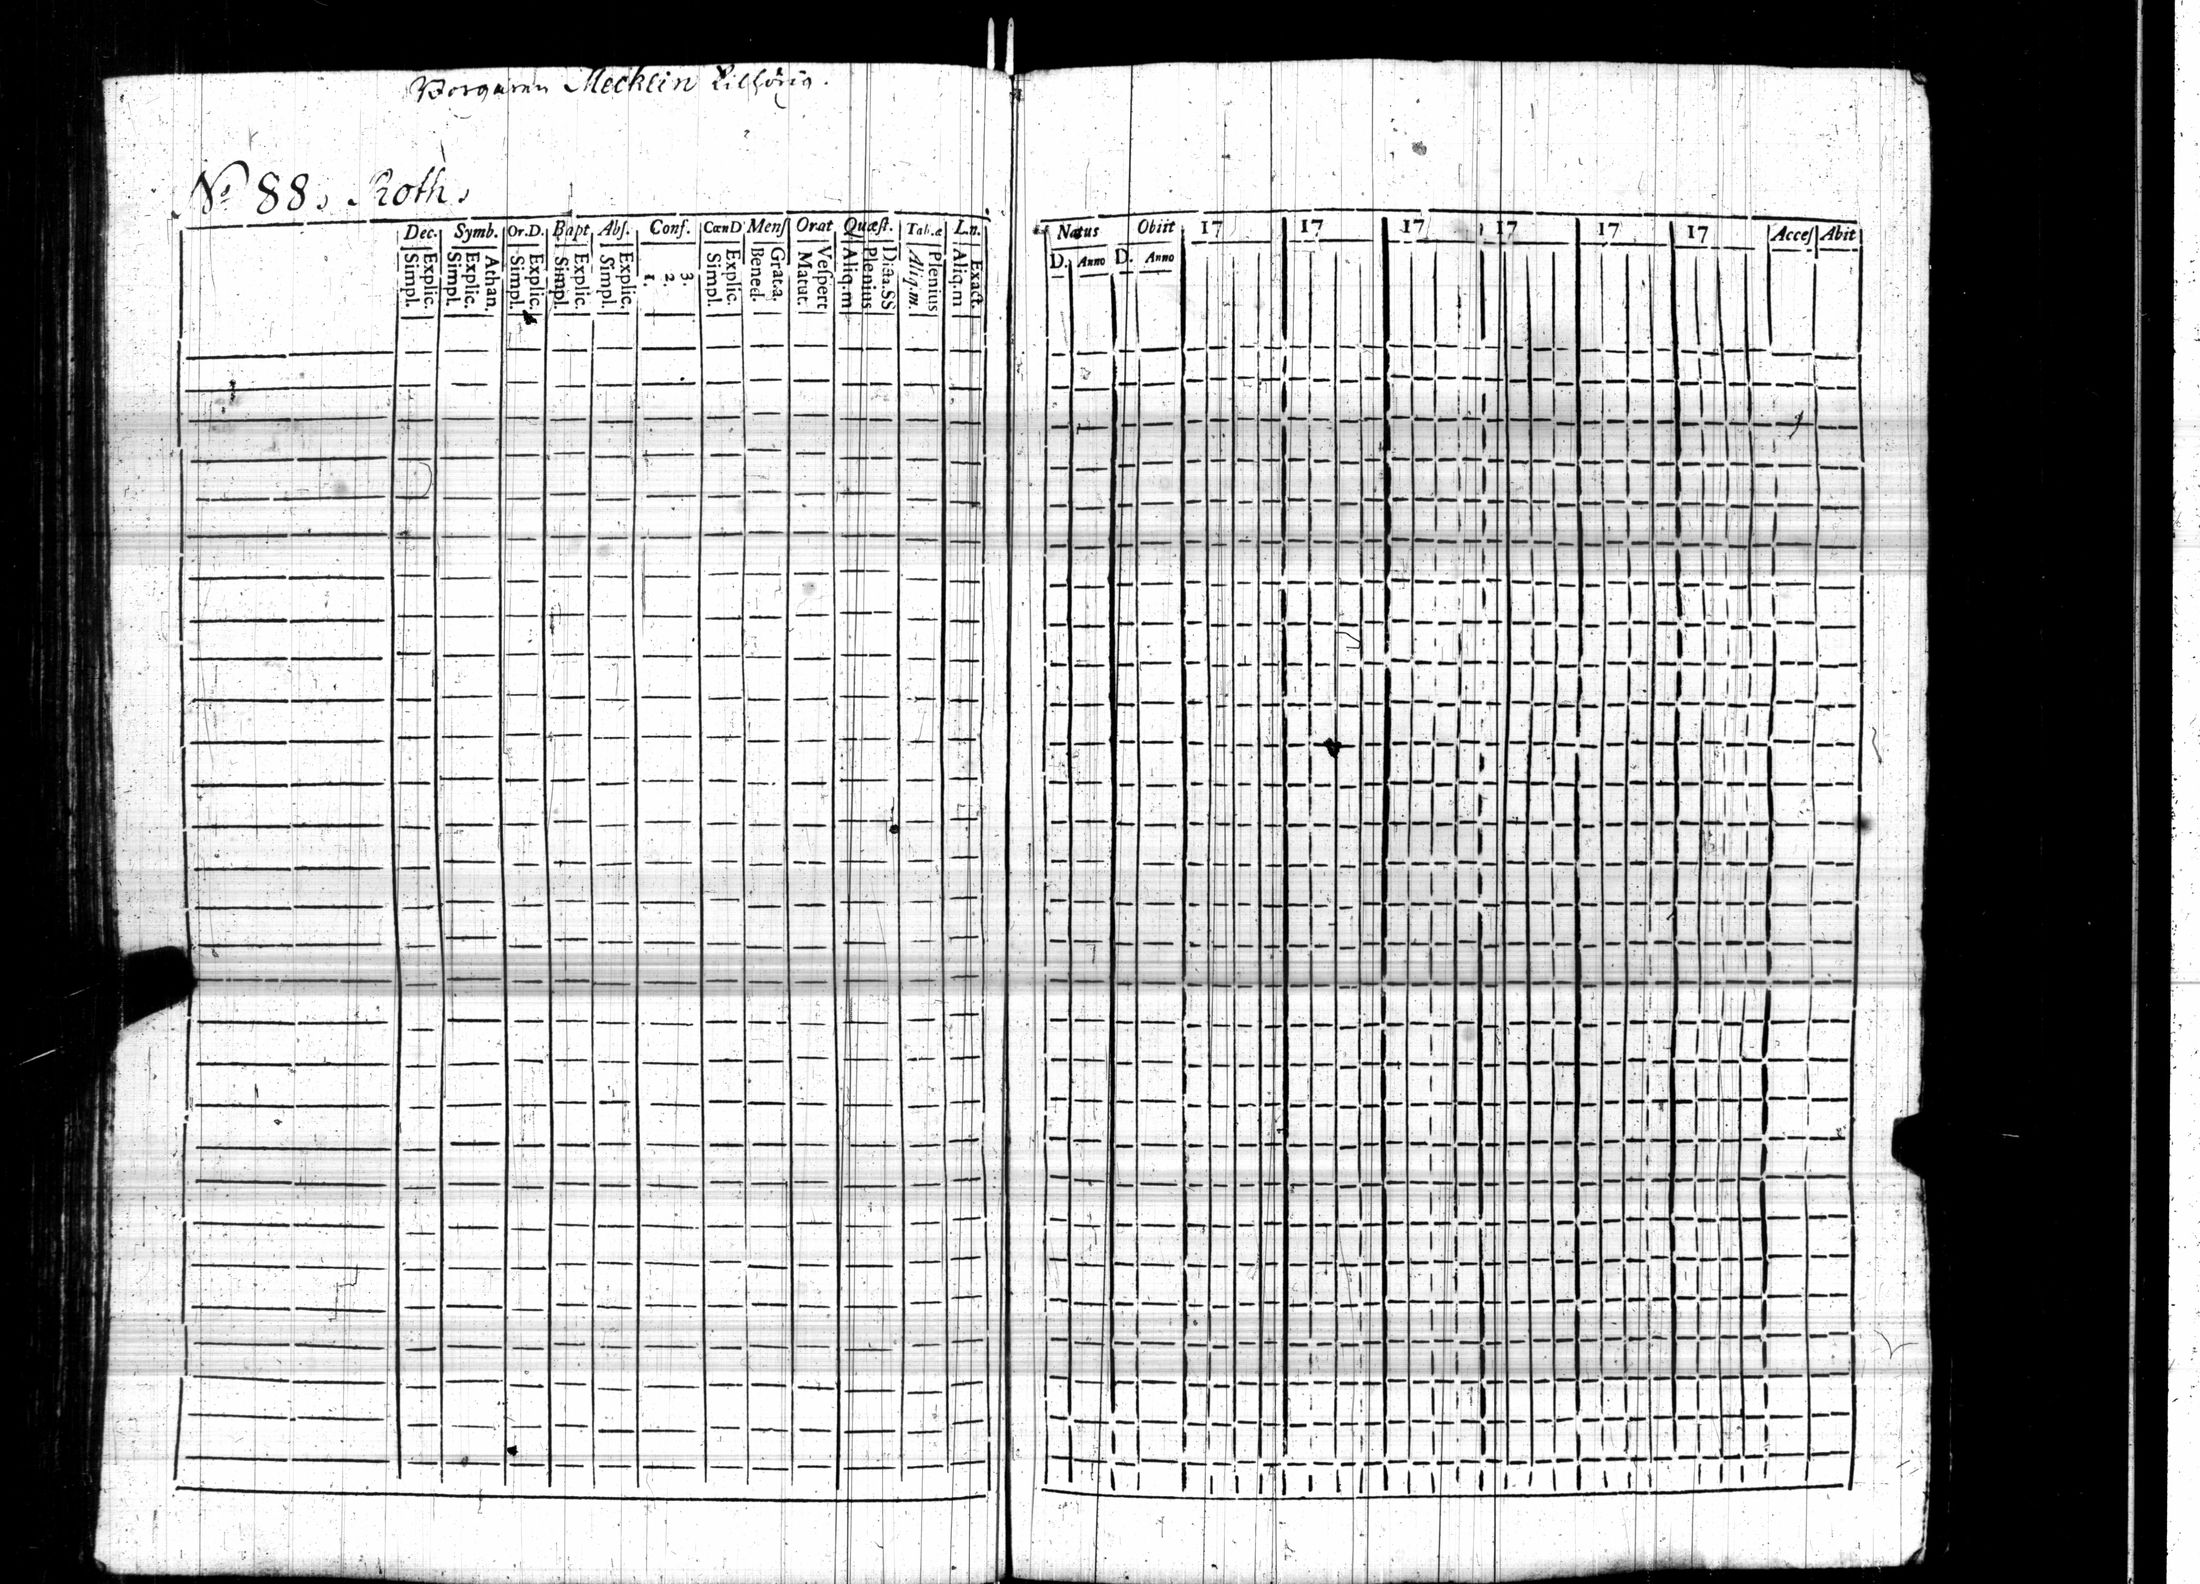 Borgaren Mecklin tilhörig.
No 88, Roth,
Dec. Symb. Or.D. Bapt Abſ. Conf. CœnD Menſ Orat Quæſt. Tab.æ L.n.
Explic. Simpl. Athan. Explic. Simpl. Explic. Simpl. Explic. Simpl. Explic. Simpl. 3. 2. 1. Explic. Simpl. Grat.a. Bened. Veſpert Matut. Dicta.SS Plenius Aliq.m Plenius Aliq.m. Exact. Aliq.m
Natus Obiit 17 17 17 17 17 17 Acceſ Abit
D. Anno D. Anno